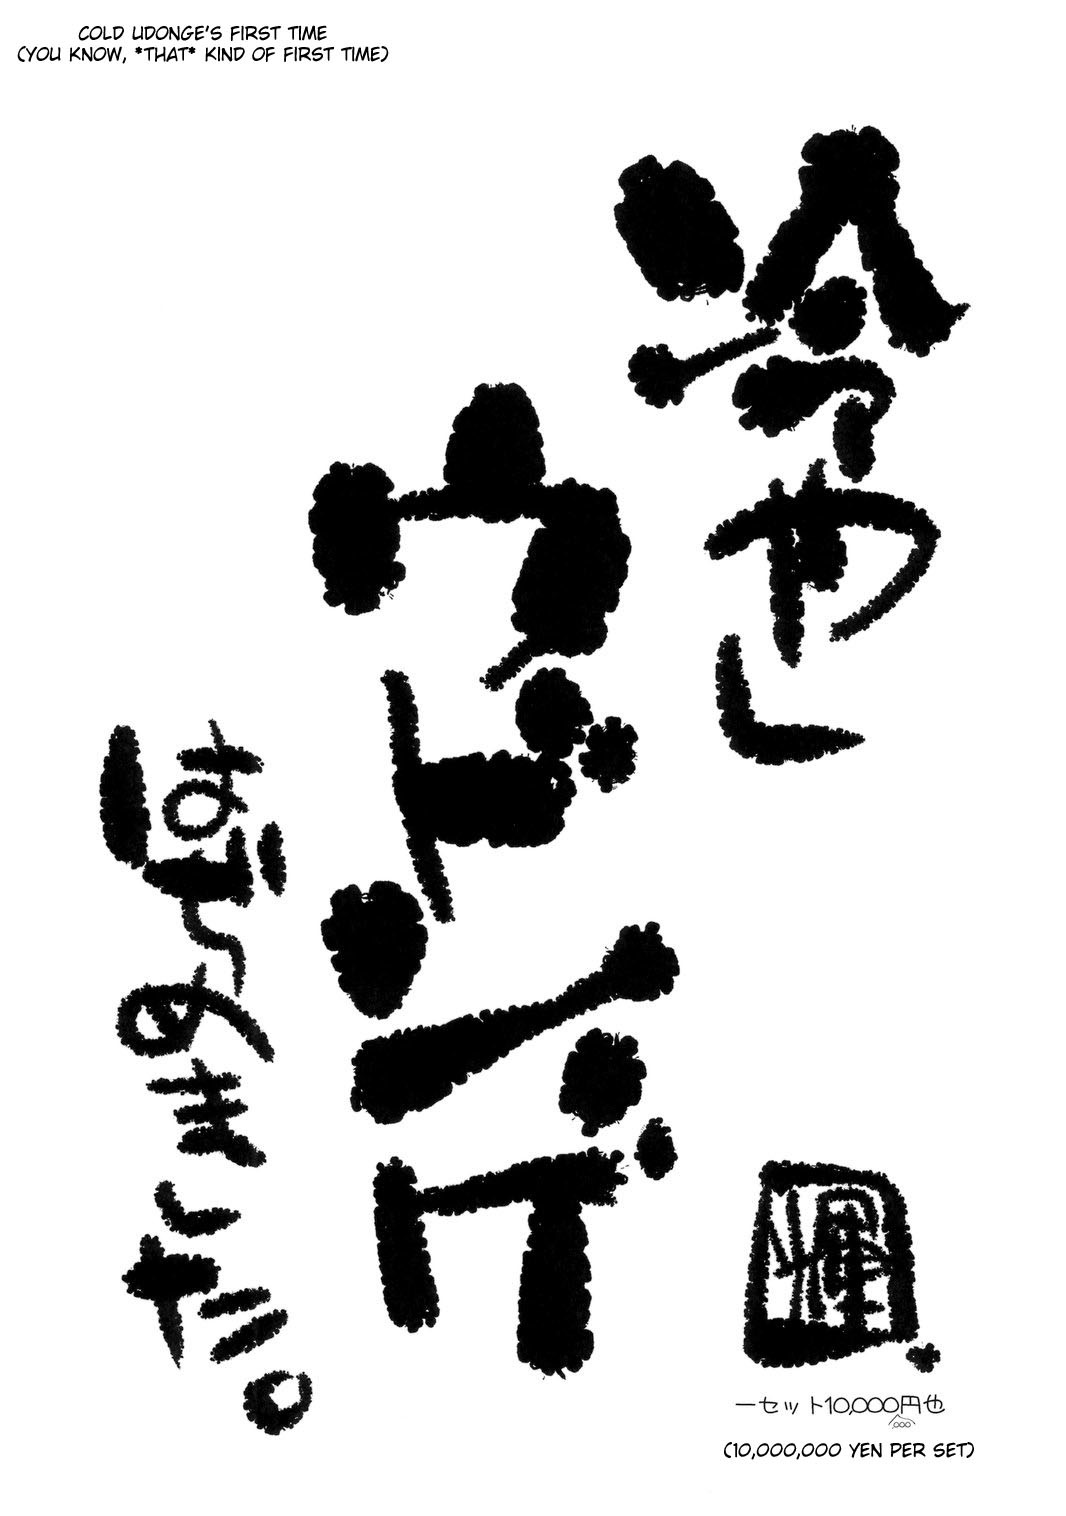 COLD UDONGE'S FIRST TIME
(YOU KNOW, *THAT* KIND OF FIRST TIME)
冷やし
ウドンゲ
はぢめました。
輝
一セット10,000円也
,000
(10,000,000 YEN PER SET)